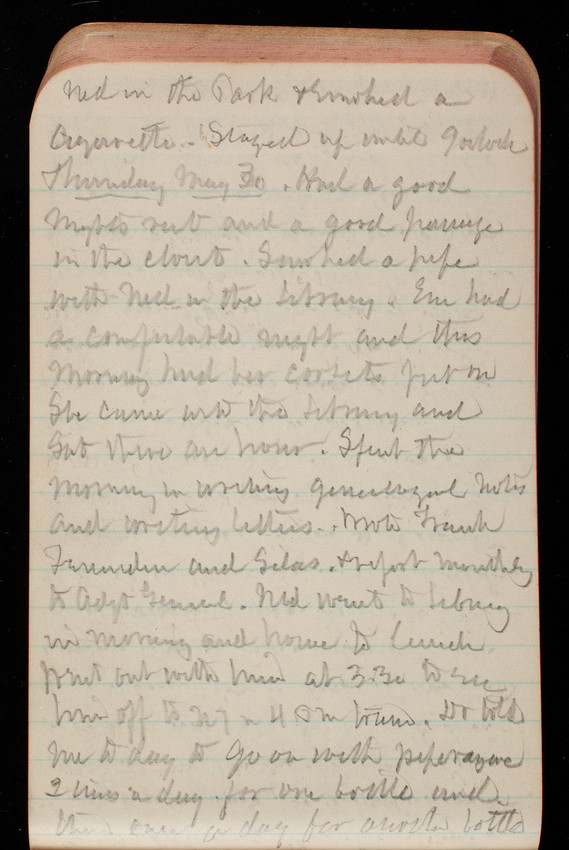 Ned in the Park & smoked a
Cigarette. Stayed up until 9 oclock
Thursday May 30. Had a good
nights rest and a good passage
in the closet. Smoked a pipe
with Ned in the Library. Em had
a comfortable night and this
morning had her corsets put on
She came into the Library and
Sat there an hour. Spent the
morning in writing genealogical notes
and writing letters. Wrote Frank
and Silas. & report monthly
to Adjt General. Ned went to Library
in morning and home to lunch
Went out with him at 3.30 to see
him off to N Y in 4 P m train. Dr told
me to day to go on with piperazine
2 times a day for one bottle and
then once a day for another bottle